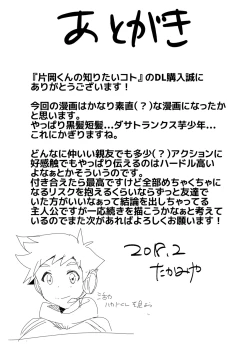 あとがき
『片岡くんの知りたいコト』のDL購入誠に
ありがとうございます！
今回の漫画はかなり素直(？)な漫画になったか
と思います。
やっぱり黒髪短髪…ダサトランクス芋少年…
これにかぎりますね。
どんなに仲いい親友でも多少(？)アクションに
好感触でもやっぱり伝えるのはハードル高い
よなぁとかそういうのです。
付き合えたら最高ですけど全部めちゃくちゃに
なるリスクを抱えるくらいならずっと友達で
いた方がいいなぁって結論を出しちゃってる
主人公ですが一応続きを描こうかなぁと考えて
いるのでまた次があればよろしくお願いします！
2018.2
たかみや